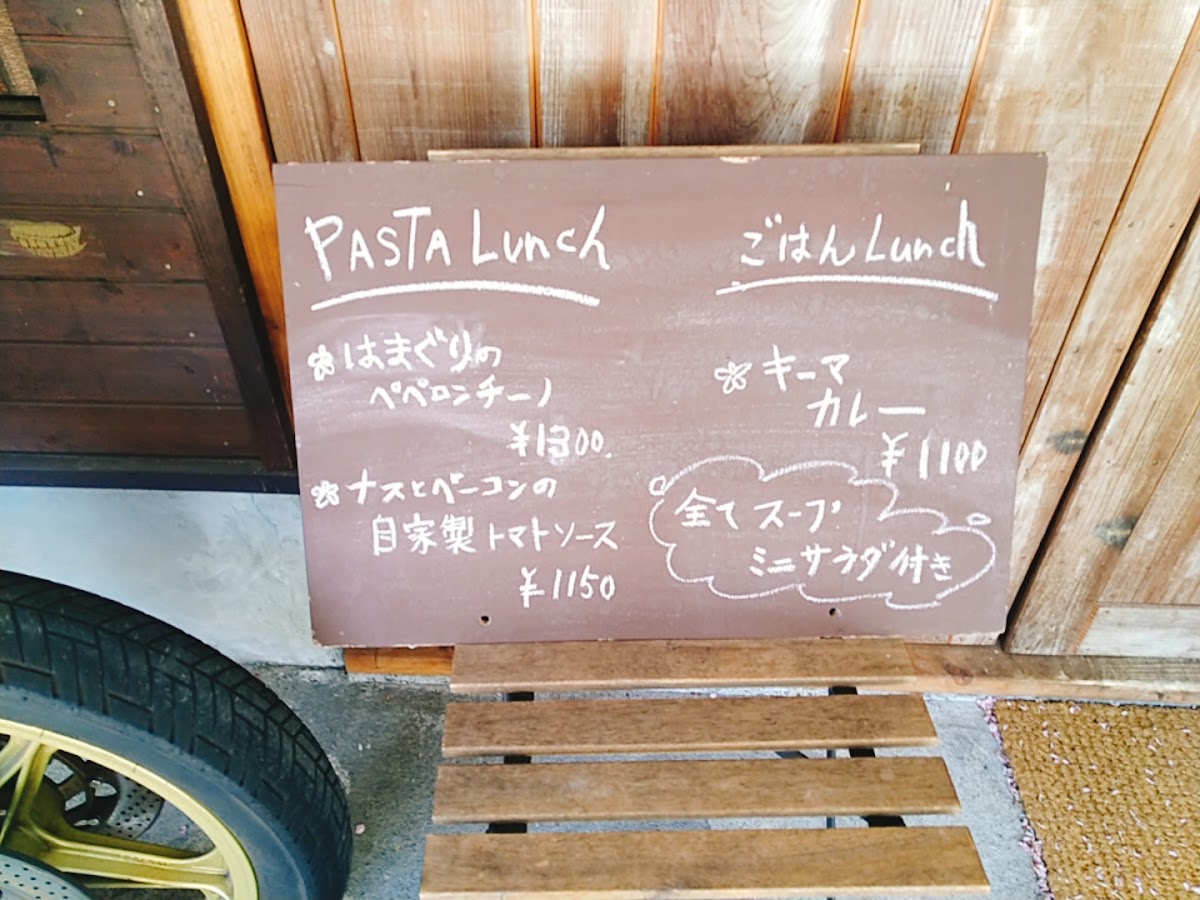 PASTA Lunch
はまぐりの
ペペロンチーノ
¥1300.
ナスとベーコンの
自家製トマトソース
¥1150
ごはんLunch
キーマ
カレー
¥1100
全てスープ
ミニサラダ付き